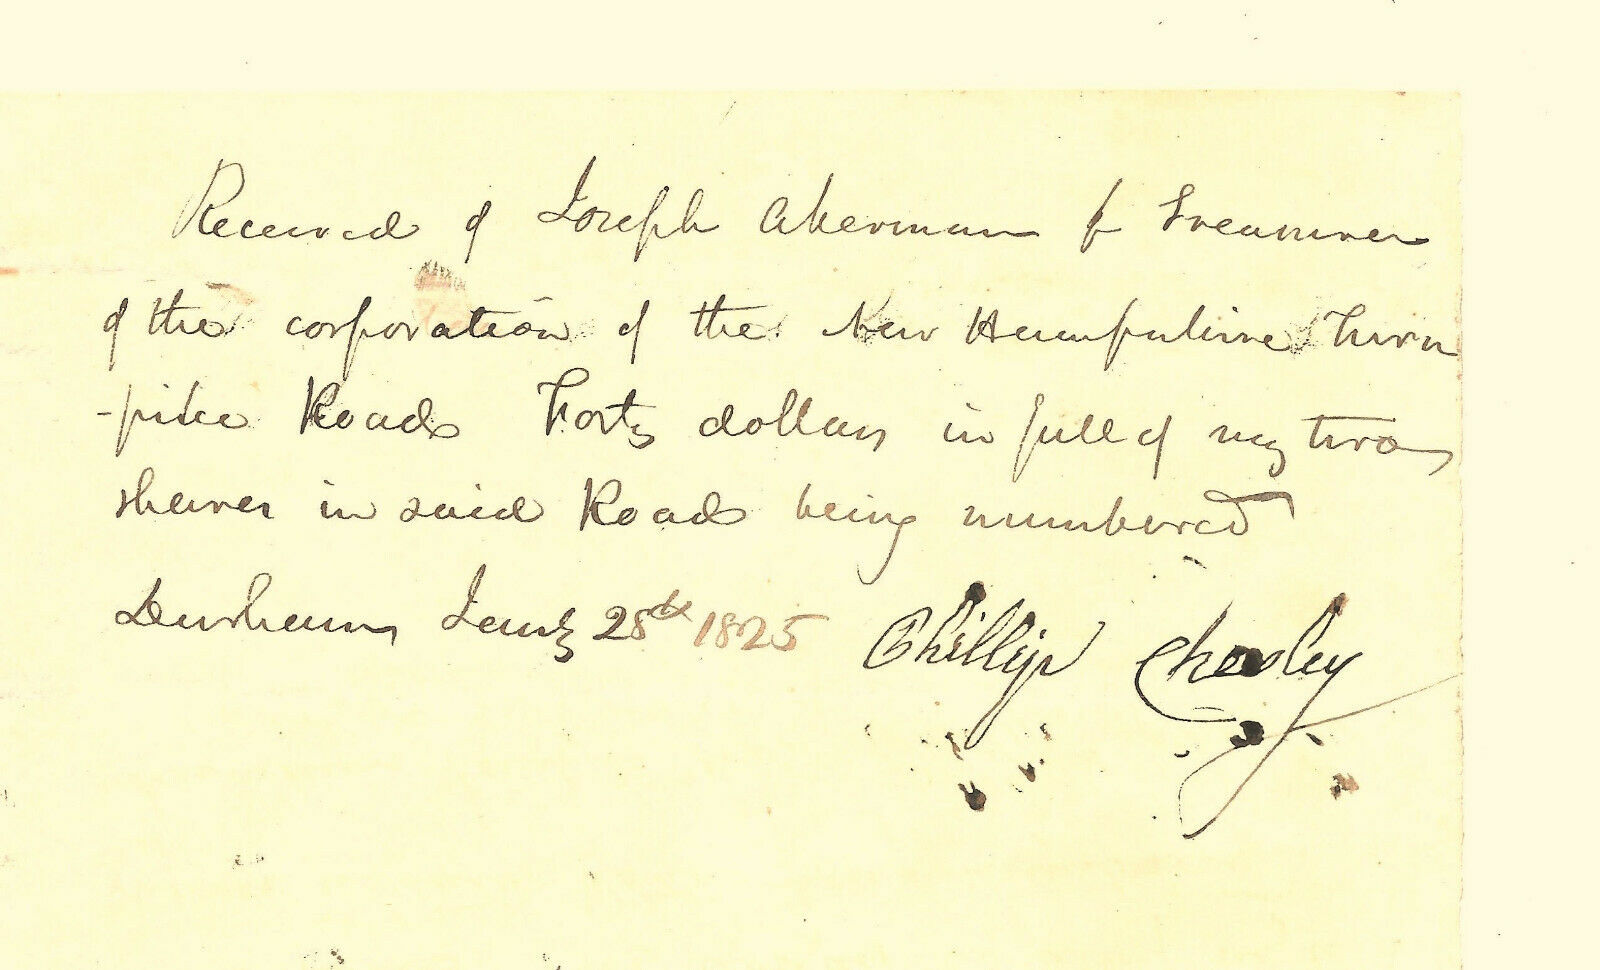 Received of Joseph Akerman Jr Treasurer
of the corporation of the New Hampshire Turn
-pike Road Forty dollars in full of my two
shares in said Road being numbered
Durham Jany 28th 1825 Phillip Chesley